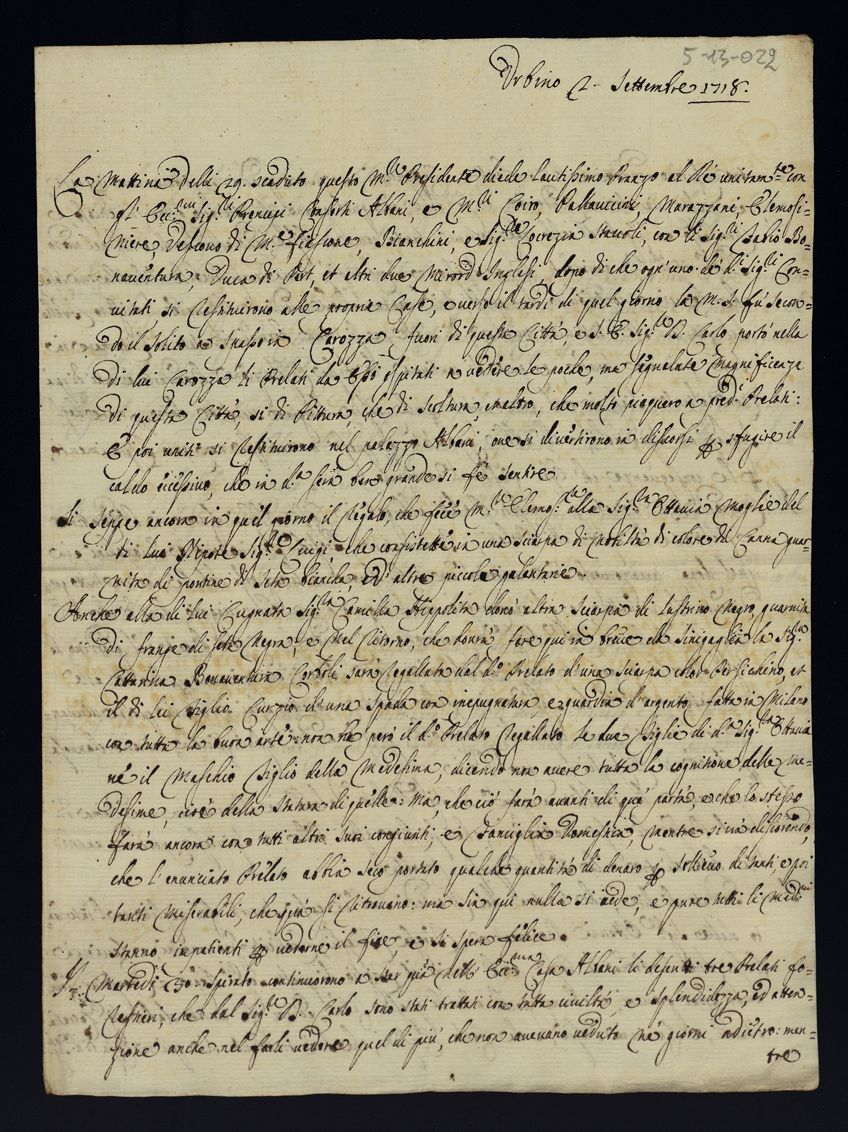 5-13-022
Urbino 2. Settembre 1718.
La Mattina delli 29. scaduto questo M.r Presidente diede lautissimo Pranzo al Rè unitam.te con
gl' Ecc.mi Sig.ri Prencipi Consorti Albani, e M.ri Coiro, Pallavicini, Marazzani, Elemosi-
niere, Vescovo di M.e Fiascone, Bianchini, e Sig.ra Lucrezia Staccoli, con li Sig.ri Bo-
naventura, Duca di Pert, et altri due Milord Inglesi, dopo di che ogn'uno de d.i Sig.ri Con-
vitati si restituirono alle proprie Case, e verso il tardi di quel giorno la M. S. fù secon-
do il solito a spasso in Carozza fuori di questa Città, e S. E. Sig.r D. Carlo portò nella
di lui Carozza li Prelati da Esso ospitati a vedere le poche, ma segnalate magnificenze
di questa Città, sì di Pittura, che di scoltura, et altro, che molto piacquero a pred.i Prelati:
E poi uniti si restituirono nel palazzo Albani, ove si divertirono in discorsi p sfugire il
caldo eccessivo, che in d.a sera ben grande si fè sentire.
Si seppe ancora in quel giorno il Regalo, che fece M.r Elemos.re alla Sig.ra Ottavia Moglie del
di lui Nipote Sig.r Luigi che consistette in una sciarpa di mobiltà di colore di Canna guar-
nita di pontine di seta bianche, ed altre piccole galanterie.
Anche alla di lui Cugnata Sig.ra Camilla Hippolita donò altra sciarpa di lustrino Negro, guarnita
di frange di seta Negra, e nel ritorno, che dovrà fare qui in breve da Sinigaglia la Sig.ra
Cattarina Bonaventura Corboli sarà regallata dal d.o Prelato d'una sciarpa color Persichino, et
il di lei Figlio Curzio d'una Spada con impugnatura e guardia d'argento fatta in Milano
con tutta la buon'arte: non hà però il d.o Prelato regallato le due Figlie di d.a Sig.ra Ottavia
nè il Maschio Figlio della Medesima, dicendo non avere tutta la cognitione delle me-
desime, cioè della statura di quelle: Mà, che ciò farà avanti di quà parta, e che lo stesso
farà ancora con tutti altri suoi congiunti, e Famiglia Domestica, mentre si và discorendo,
che l'enunciato Prelato abbia seco portato qualche quantità di denaro p sollievo di tanti, e poi
tanti miserabili, che quà si ritrovano: ma sin quì nulla si vede, e pure tutti li Med.mi
stanno impatienti p vederne il fine, e si spera felice.
Martedì 30. spirato continuorono a star quà nell' Ecc.ma Casa Albani li desenti tre Prelati fo-
restieri, che dal Sig.r D. Carlo sono stati trattati con tutta civiltà, e splendidezza, ed atten-
zione anche nel farli vedere quel di più, che non avevano veduto nè giorni adietro: men-
tre